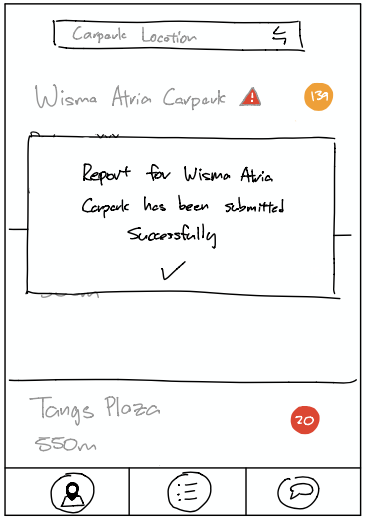 Carpark Location
Wisma Atria Carpark
139
Report for Wisma Atria
Carpark has been submitted
Successfully
Tangs Plaza
20
550m